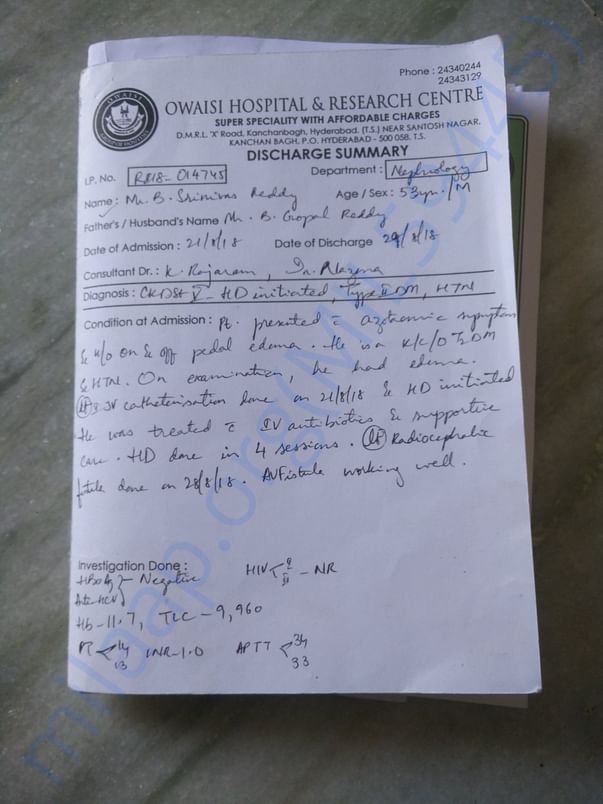 Phone : 24340244
24343129
OWAISI HOSPITAL & RESEARCH CENTRE
SUPER SPECIALITY WITH AFFORDABLE CHARGES
D.M.R.L. 'X' Road, Kanchanbagh, Hyderabad. (T.S.) NEAR SANTOSH NAGAR,
KANCHAN BAGH, P.O. HYDERABAD - 500 058. T.S.
DISCHARGE SUMMARY
I.P. No. R018-014745 Department : Nephrology
Name : Mr. B. Srinivas Reddy Age / Sex : 53yrs / M
Father's / Husband's Name Mr. B. Gopal Reddy
Date of Admission : 21/8/18 Date of Discharge 29/8/18
Consultant Dr. : K. Rajaram, Dr. Nazma
Diagnosis : CKD St V - HD initiated, Type II DM, HTN
Condition at Admission : Pt. presented c̄ azotemic symptoms
& H/o on & off pedal edema. He is a K/C/O T2DM
& HTN. On examination, he had edema.
IJV catheterisation done on 21/8/18 & HD initiated
He was treated c̄ IV antibiotics & supportive
care. HD done in 4 sessions. Lt Radiocephalic
fistula done on 28/8/18. AV Fistula working well.
Investigation Done :
HBsAg Negative HIV I II - NR
Anti-HCV
Hb - 11.7, TLC - 9,960
PT 14 13 INR - 1.0 APTT 34 33
milaap.org